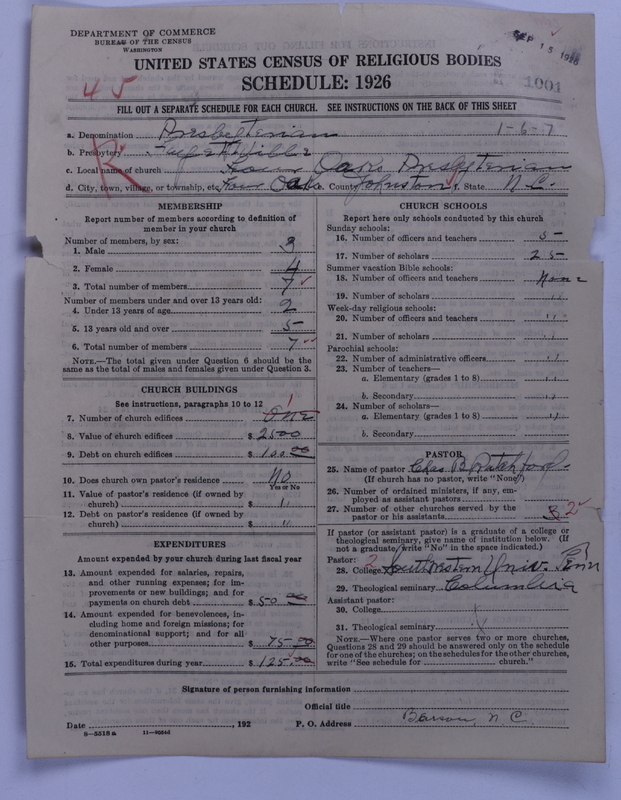 DEPARTMENT OF COMMERCE
BUREAU OF THE CENSUS
WASHINGTON
SEP 15 1926
UNITED STATES CENSUS OF RELIGIOUS BODIES
SCHEDULE: 1926
1001
45
FILL OUT A SEPARATE SCHEDULE FOR EACH CHURCH. SEE INSTRUCTIONS ON THE BACK OF THIS SHEET
a. Denomination Presbyterian 1-6-7
b. Presbytery Fayetteville
c. Local name of church Four Oaks Presbyterian
d. City, town, village, or township, etc. Four Oaks e. County Johnston f. State N. C.
R
MEMBERSHIP
Report number of members according to definition of member in your church
Number of members, by sex:
1. Male 3
2. Female 4
3. Total number of members 7
Number of members under and over 13 years old:
4. Under 13 years of age 2
5. 13 years old and over 5
6. Total number of members 7
NOTE.—The total given under Question 6 should be the
same as the total of males and females given under Question 3.
CHURCH BUILDINGS
See instructions, paragraphs 10 to 12
7. Number of church edifices ONE 1
8. Value of church edifices $ 2500
9. Debt on church edifices $ 100.00
10. Does church own pastor's residence No
Yes or No
11. Value of pastor's residence (if owned by
church) $ "
12. Debt on pastor's residence (if owned by
church) $ "
EXPENDITURES
Amount expended by your church during last fiscal year
13. Amount expended for salaries, repairs,
and other running expenses; for im-
provements or new buildings; and for
payments on church debt $ 50.00
14. Amount expended for benevolences, in-
cluding home and foreign missions; for
denominational support; and for all
other purposes $ 75.00
15. Total expenditures during year $ 125.00
CHURCH SCHOOLS
Report here only schools conducted by this church
Sunday schools:
16. Number of officers and teachers 5
17. Number of scholars 25
Summer vacation Bible schools:
18. Number of officers and teachers None
19. Number of scholars "
Week-day religious schools:
20. Number of officers and teachers "
21. Number of scholars "
Parochial schools:
22. Number of administrative officers "
23. Number of teachers—
a. Elementary (grades 1 to 8) "
b. Secondary "
24. Number of scholars—
a. Elementary (grades 1 to 8) "
b. Secondary
PASTOR
25. Name of pastor Chas B. Ratchford
(If church has no pastor, write "None")
26. Number of ordained ministers, if any, em-
ployed as assistant pastors
27. Number of other churches served by the
pastor or his assistants 3 2
If pastor (or assistant pastor) is a graduate of a college or
theological seminary, give name of institution below. (If
not a graduate, write "No" in the space indicated.)
Pastor: 2
28. College Southwestern Univ.
29. Theological seminary Columbia
Assistant pastor:
30. College
31. Theological seminary
NOTE.—Where one pastor serves two or more churches,
Questions 28 and 29 should be answered only on the schedule
for one of the churches; on the schedules for the other churches,
write "See schedule for church."
Signature of person furnishing information
Official title
Date , 192 P. O. Address Benson, N. C.
8—5518 a 11—9684d